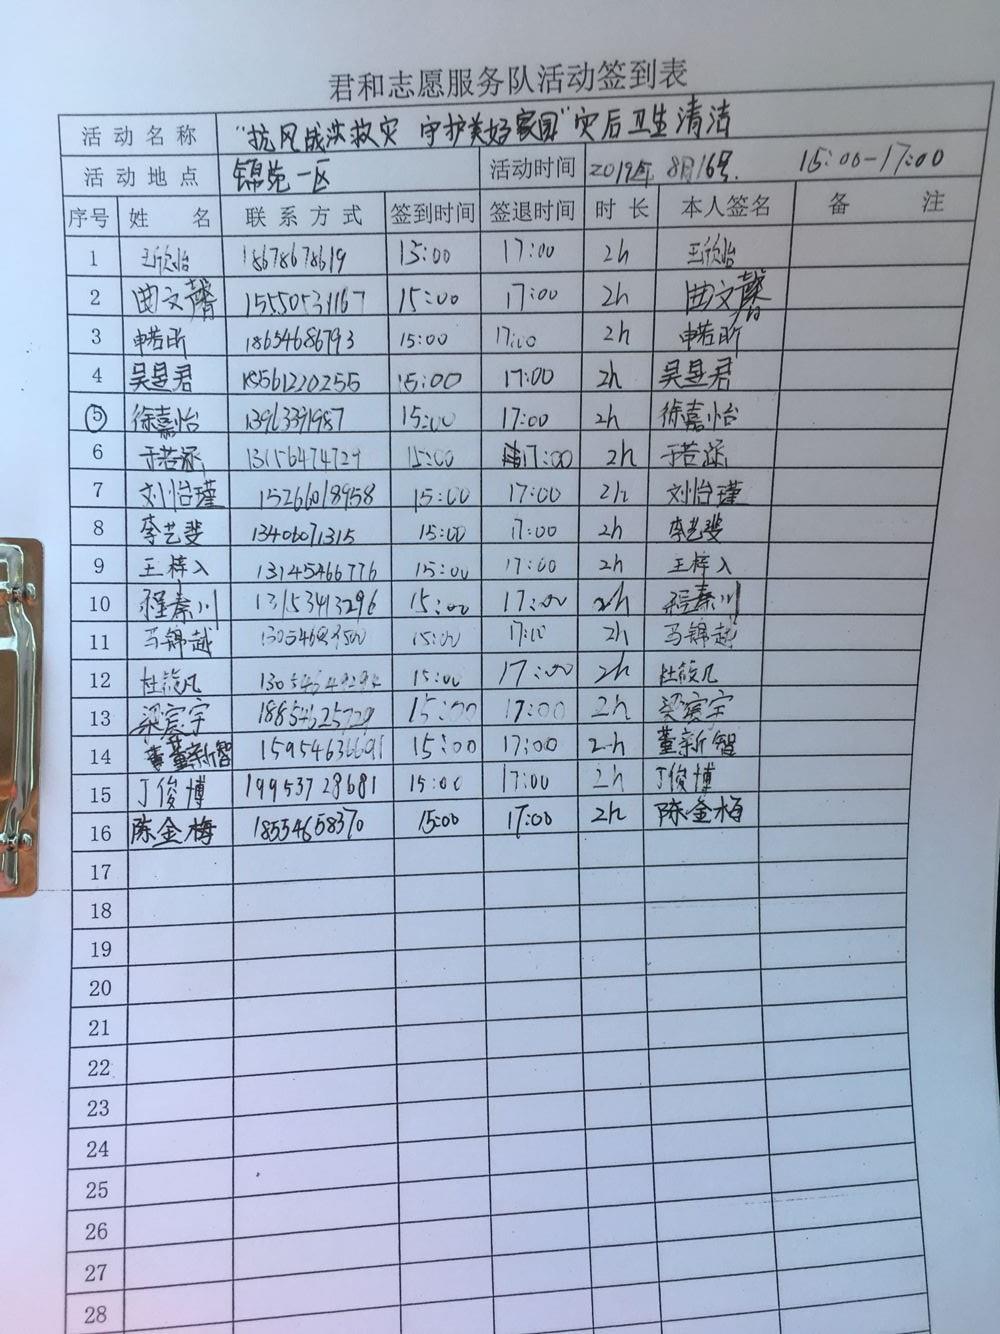 君和志愿服务队活动签到表
活动名称 "抗风战洪救灾 守护美好家园"灾后卫生清洁
活动地点 锦苑一区 活动时间 2019年 8月16号. 15:00-17:00
序号 姓名 联系方式 签到时间 签退时间 时长 本人签名 备注
1 王欣怡 18678678619 15:00 17:00 2h 王欣怡
2 曲文馨 15550531167 15:00 17:00 2h 曲文馨
3 申若昕 18654686793 15:00 17:00 2h 申若昕
4 吴昱君 18561220255 15:00 17:00 2h 吴昱君
5 徐嘉怡 13963391987 15:00 17:00 2h 徐嘉怡
6 于若涵 13156474729 15:00 17:00 2h 于若涵
7 刘怡瑾 15266018958 15:00 17:00 2h 刘怡瑾
8 李艺斐 13406071315 15:00 17:00 2h 李艺斐
9 王梓入 13145466776 15:00 17:00 2h 王梓入
10 程秦川 13153413296 15:00 17:00 2h 程秦川
11 马锦越 15:00 17:00 2h 马锦越
12 杜筱凡 15:00 17:00 2h 杜筱凡
13 梁宸宇 18854625729 15:00 17:00 2h 梁宸宇
14 董新智 15954636691 15:00 17:00 2h 董新智
15 丁俊博 19953728681 15:00 17:00 2h 丁俊博
16 陈金梅 18554658370 15:00 17:00 2h 陈金梅
17
18
19
20
21
22
23
24
25
26
27
28